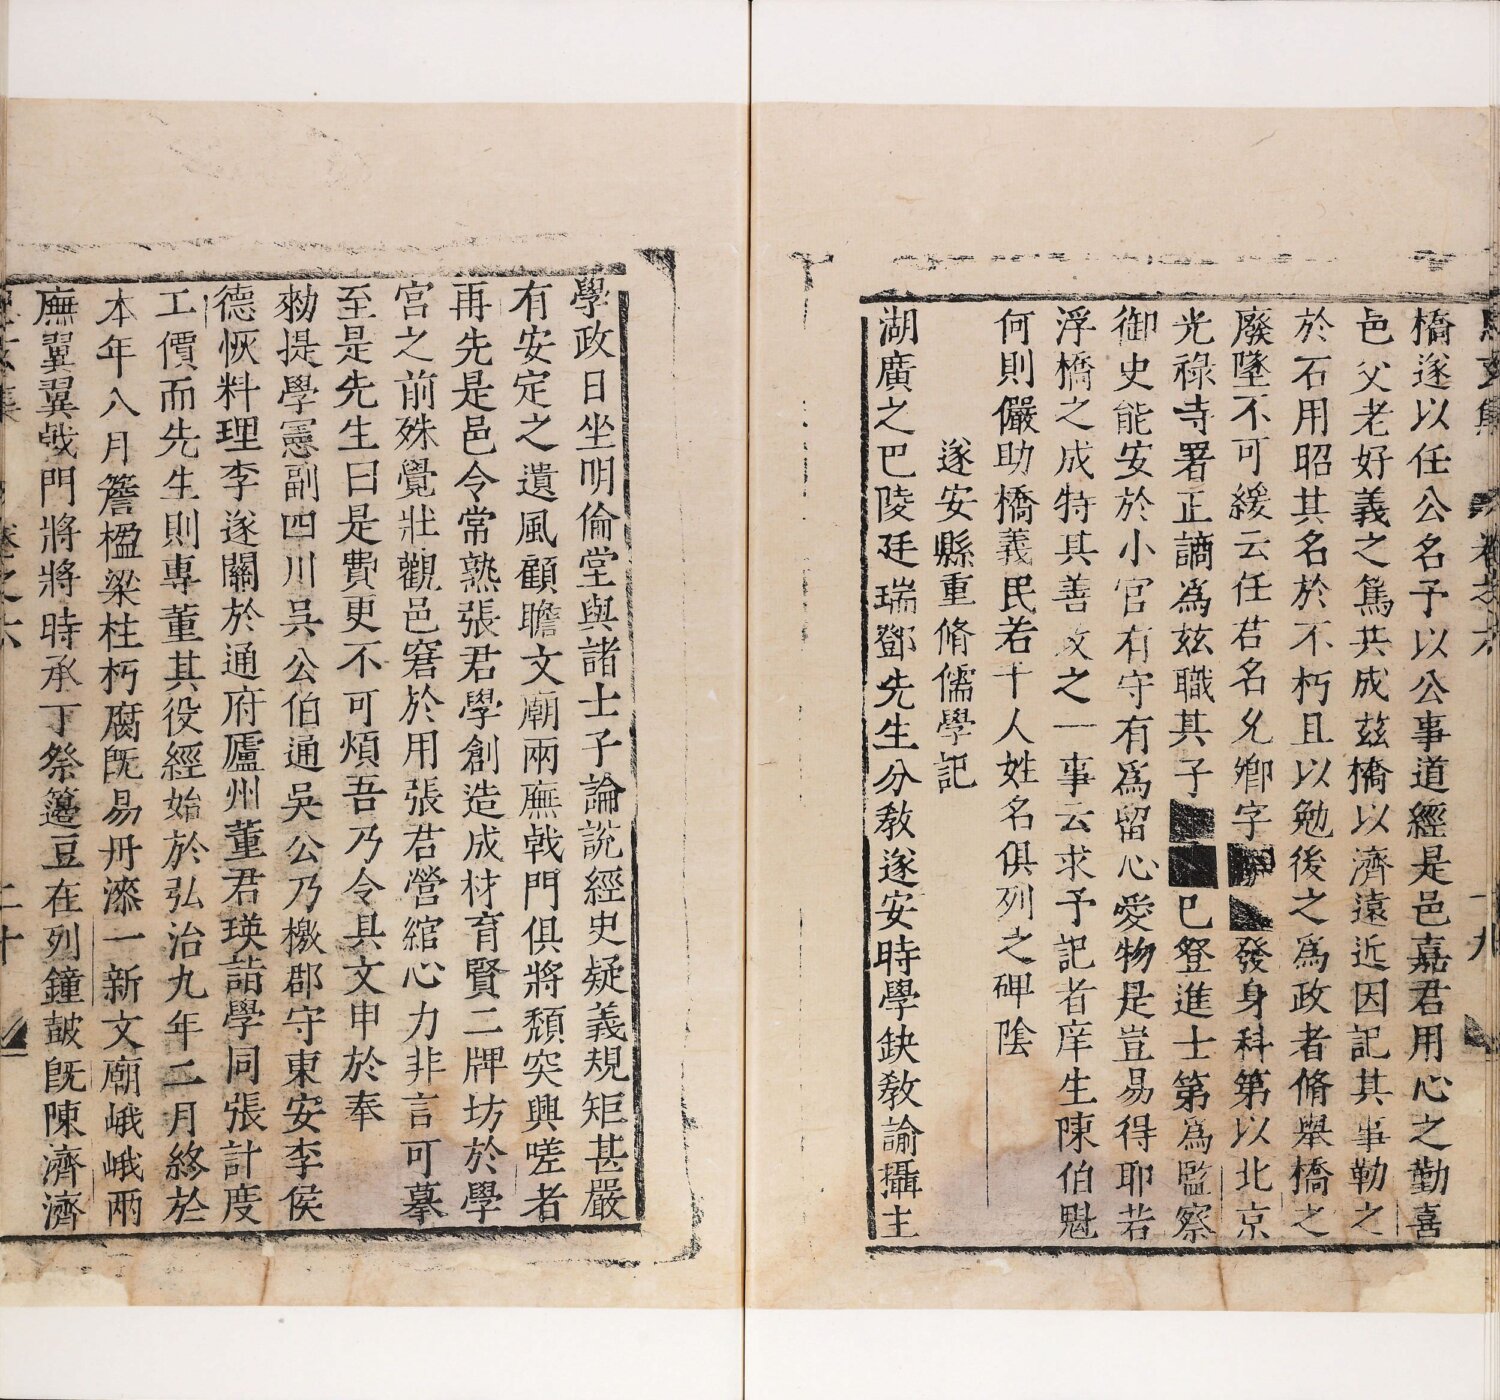 橋遂以任公名予以公事道經是邑嘉君用心之勤喜
邑父老好義之篤共成茲橋以濟遠近因記其事勒之
於石用昭其名於不朽且以勉後之為政者脩舉橋之
廢墜不可緩云任君名允鄉字發身科第以北京
光祿寺署正謫為茲職其子已登進士第為監察
御史能安於小官有守有為留心愛物是豈易得耶若
浮橋之成特其善政之一事云求予記者庠生陳伯魁
何則儼助橋義民若干人姓名俱列之碑陰
遂安縣重脩儒學記
湖廣之巴陵廷瑞鄧先生分敎遂安時學缺敎諭攝主
學政日坐明倫堂與諸士子論說經史疑義規矩甚嚴
有安定之遺風顧瞻文廟兩廡戟門俱將頹突興嗟者
再先是邑令常熟張君學創造成材育賢二牌坊於學
宮之前殊覺壯觀邑窘於用張君營綰心力非言可摹
至是先生曰是費更不可煩吾乃令具文申於奉
勑提學憲副四川吳公伯通吳公乃檄郡守東安李侯
德恢料理李遂關於通府廬州董君瑛詣學同張計度
工價而先生則專董其役經始於弘治九年二月終於
本年八月簷楹梁柱朽腐旣易丹漆一新文廟峨峨兩
廡翼翼戟門將將時承丁祭籩豆在列鐘鼓旣陳濟濟
卷之六
二十